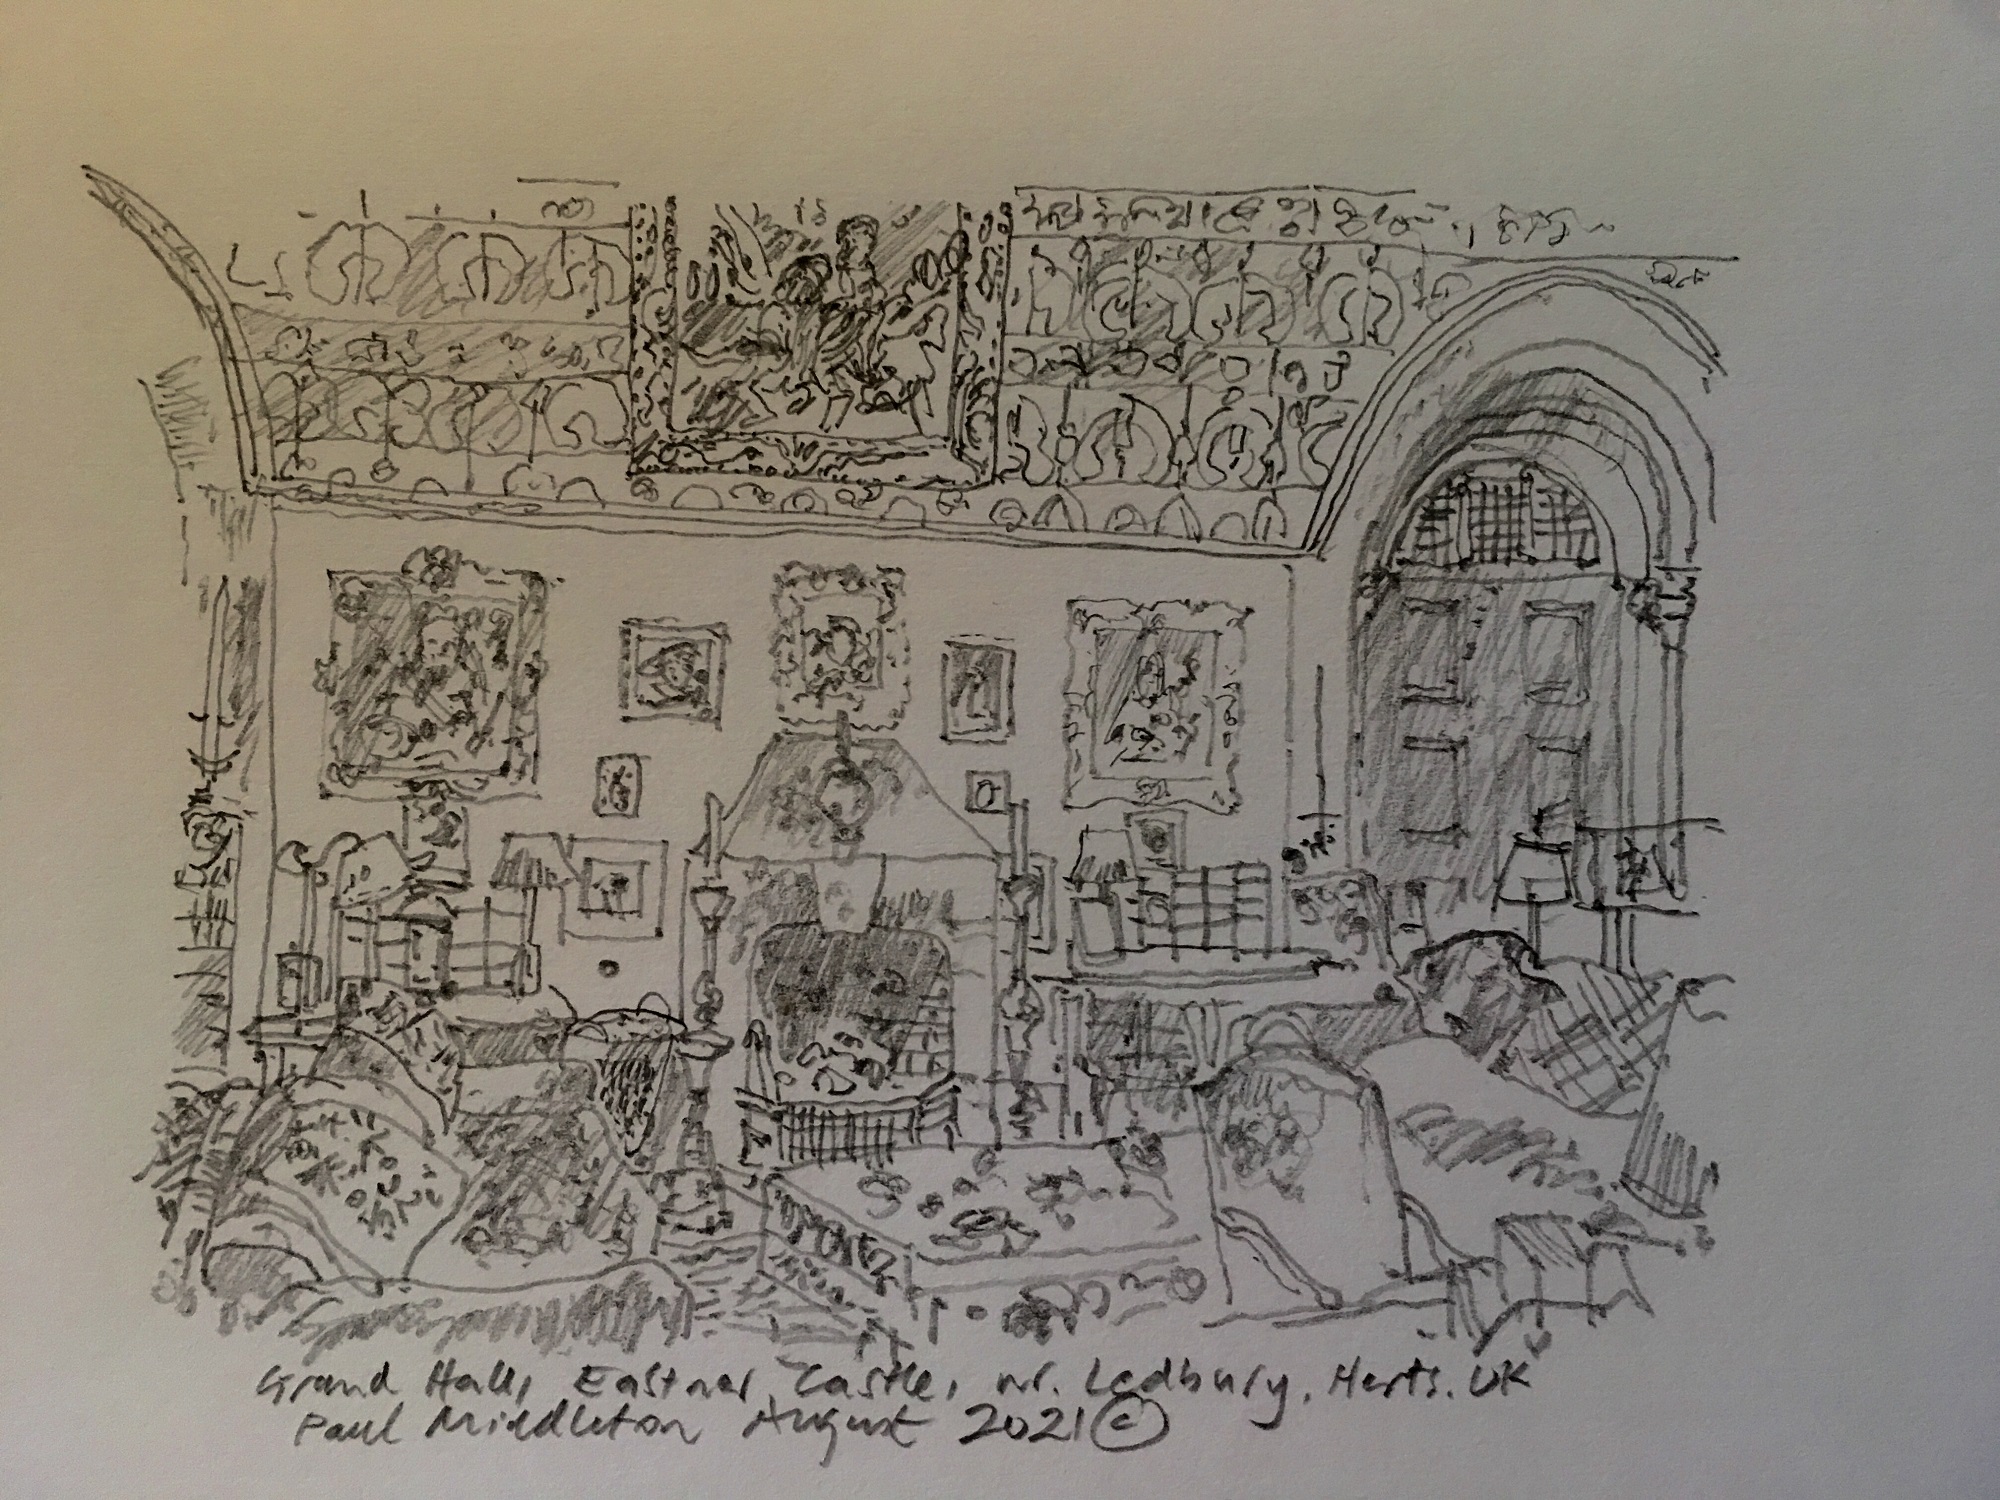 Grand Hall, Eastnor Castle, nr. Ledbury, Herts. UK
Paul Middleton August 2021 ©